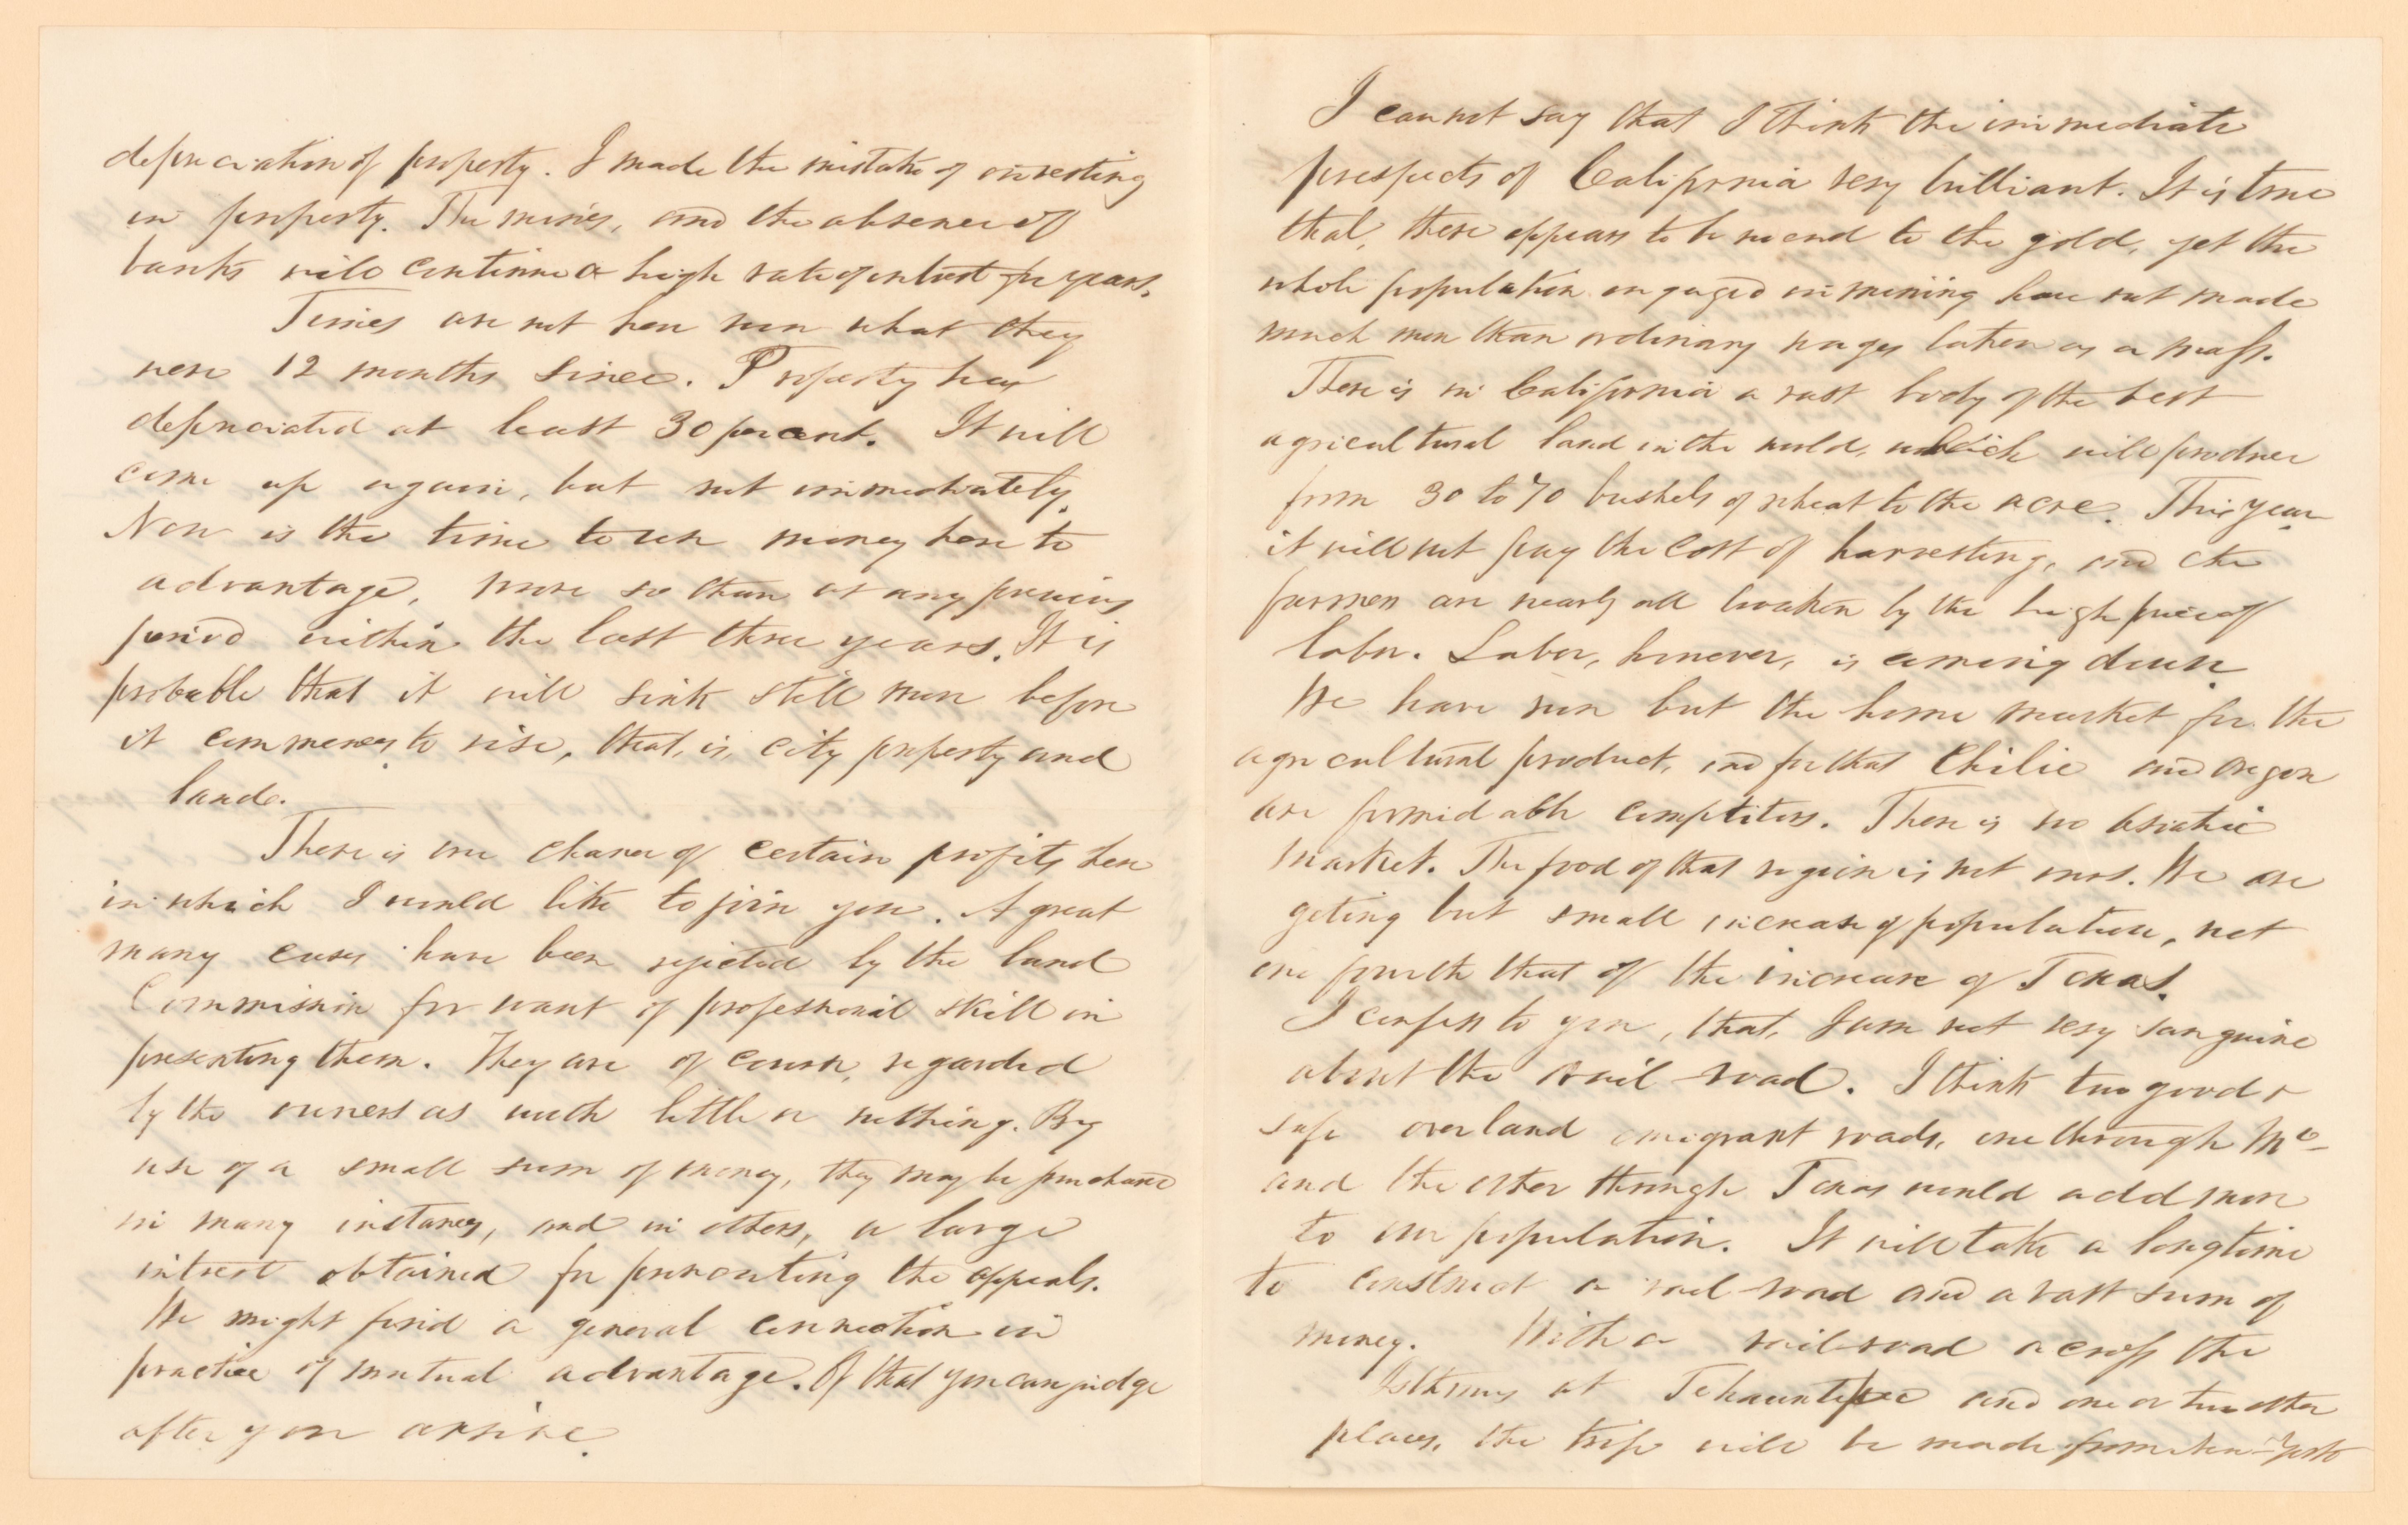 depreciation of property. I made the mistake of investing
in property. The mines, and the absence of
banks will continue a high rate of intrest for years.
Times are not here now what they
were 12 months since. Property has
depreciated at least 30 per cent. It will
come up again, but not immediately.
Now is the time to use money here to
advantage, more so than at any previous
period within the last three years. It is
probable that it will sink still more before
it commences to rise, that, is, city property and
lands.
There is one chance of certain profits here
in which I would like to join you. A great
many cases have been rejected by the land
Commission for want of professional skill in
presenting them. They are of course, regarded
by the owners as worth little or nothing. By
use of a small sum of money, they may be purchased
in many instances, and in others, a large
intrest obtained for prosecuting the appeals.
We might find a general connection in
practice of mutual advantage. Of that you can judge
after you arrive.
I cannot say that I think the immediate
prospects of California very brilliant. It is true
that, there appears to be no end to the gold, yet the
whole population engaged in mining have not made
much more than ordinary wages taken as a mass.
There is in California a vast body of the best
agricultural land in the world, which will produce
from 30 to 70 bushels of wheat to the acre. This year
it will not pay the cost of harvesting, and the
farmers are nearly all broken by the high price of
labor. Labor, however, is coming down.
We have now but the home market for the
agricultural product, and for that Chilie and Oregon
are formidable competitors. There is no asiatic
market. The food of that region is not ours. We are
geting but small increase of population, not
one fourth that of the increase of Texas.
I confess to you, that, I am not very sanguine
about the rail-road. I think two good &
safe overland emigrant roads, one through Mo-
and the other through Texas would add more
to our population. It will take a long time
to construct a rail-road and a vast sum of
money. With a rail-road across the
Isthmus at Tehauntepec and one or two other
places, the trip will be made from New-York